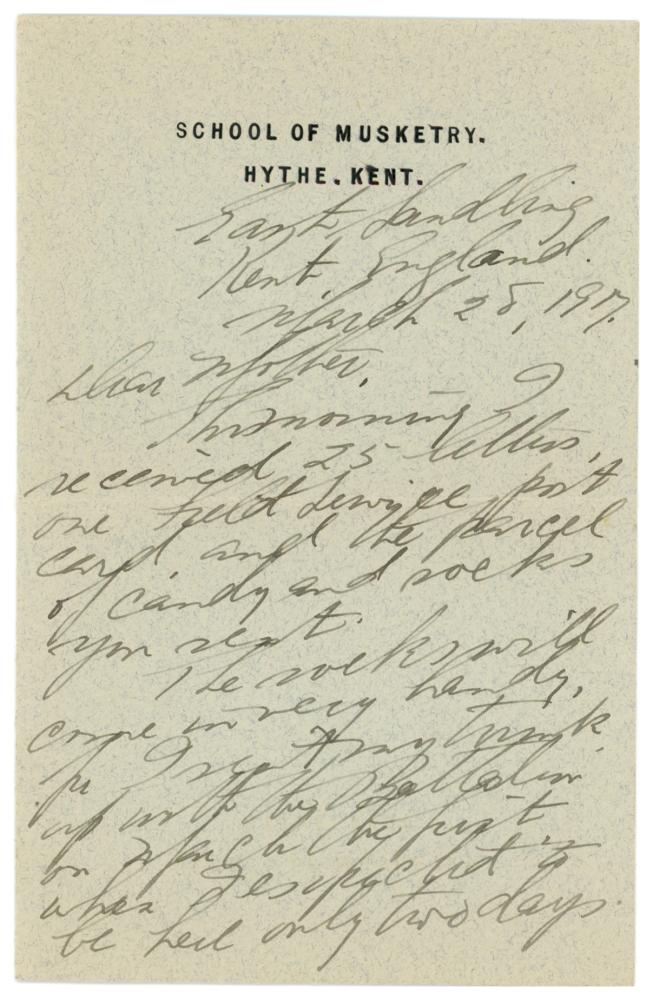 SCHOOL OF MUSKETRY.
HYTHE. KENT.
East Sandling
Kent, England.
March 28, 1917.
Dear Mother,
This morning I
received 25 letters,
one Field Service post
card and the parcel
of candy and socks
you sent.
The socks will
come in very handy,
for I sent my trunk
up with the Battalion
on March the first
when I expected to
be here only two days.